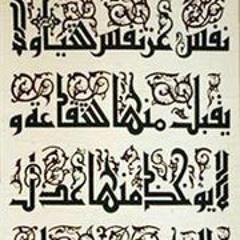 نفس عن نفس شيئا ولا
يقبل منها شفاعة و
لا يوخذ منها عدل